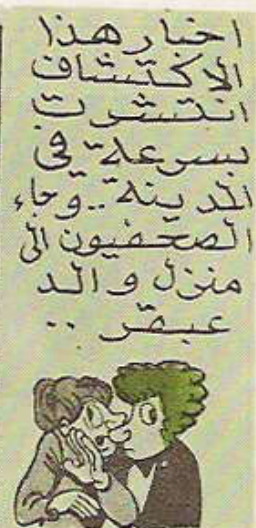 اخبار هذا
الاكتشاف
انتشرت
بسرعة فى
المدينة .. وجاء
الصحفيون الى
منزل والد
عبقر ..